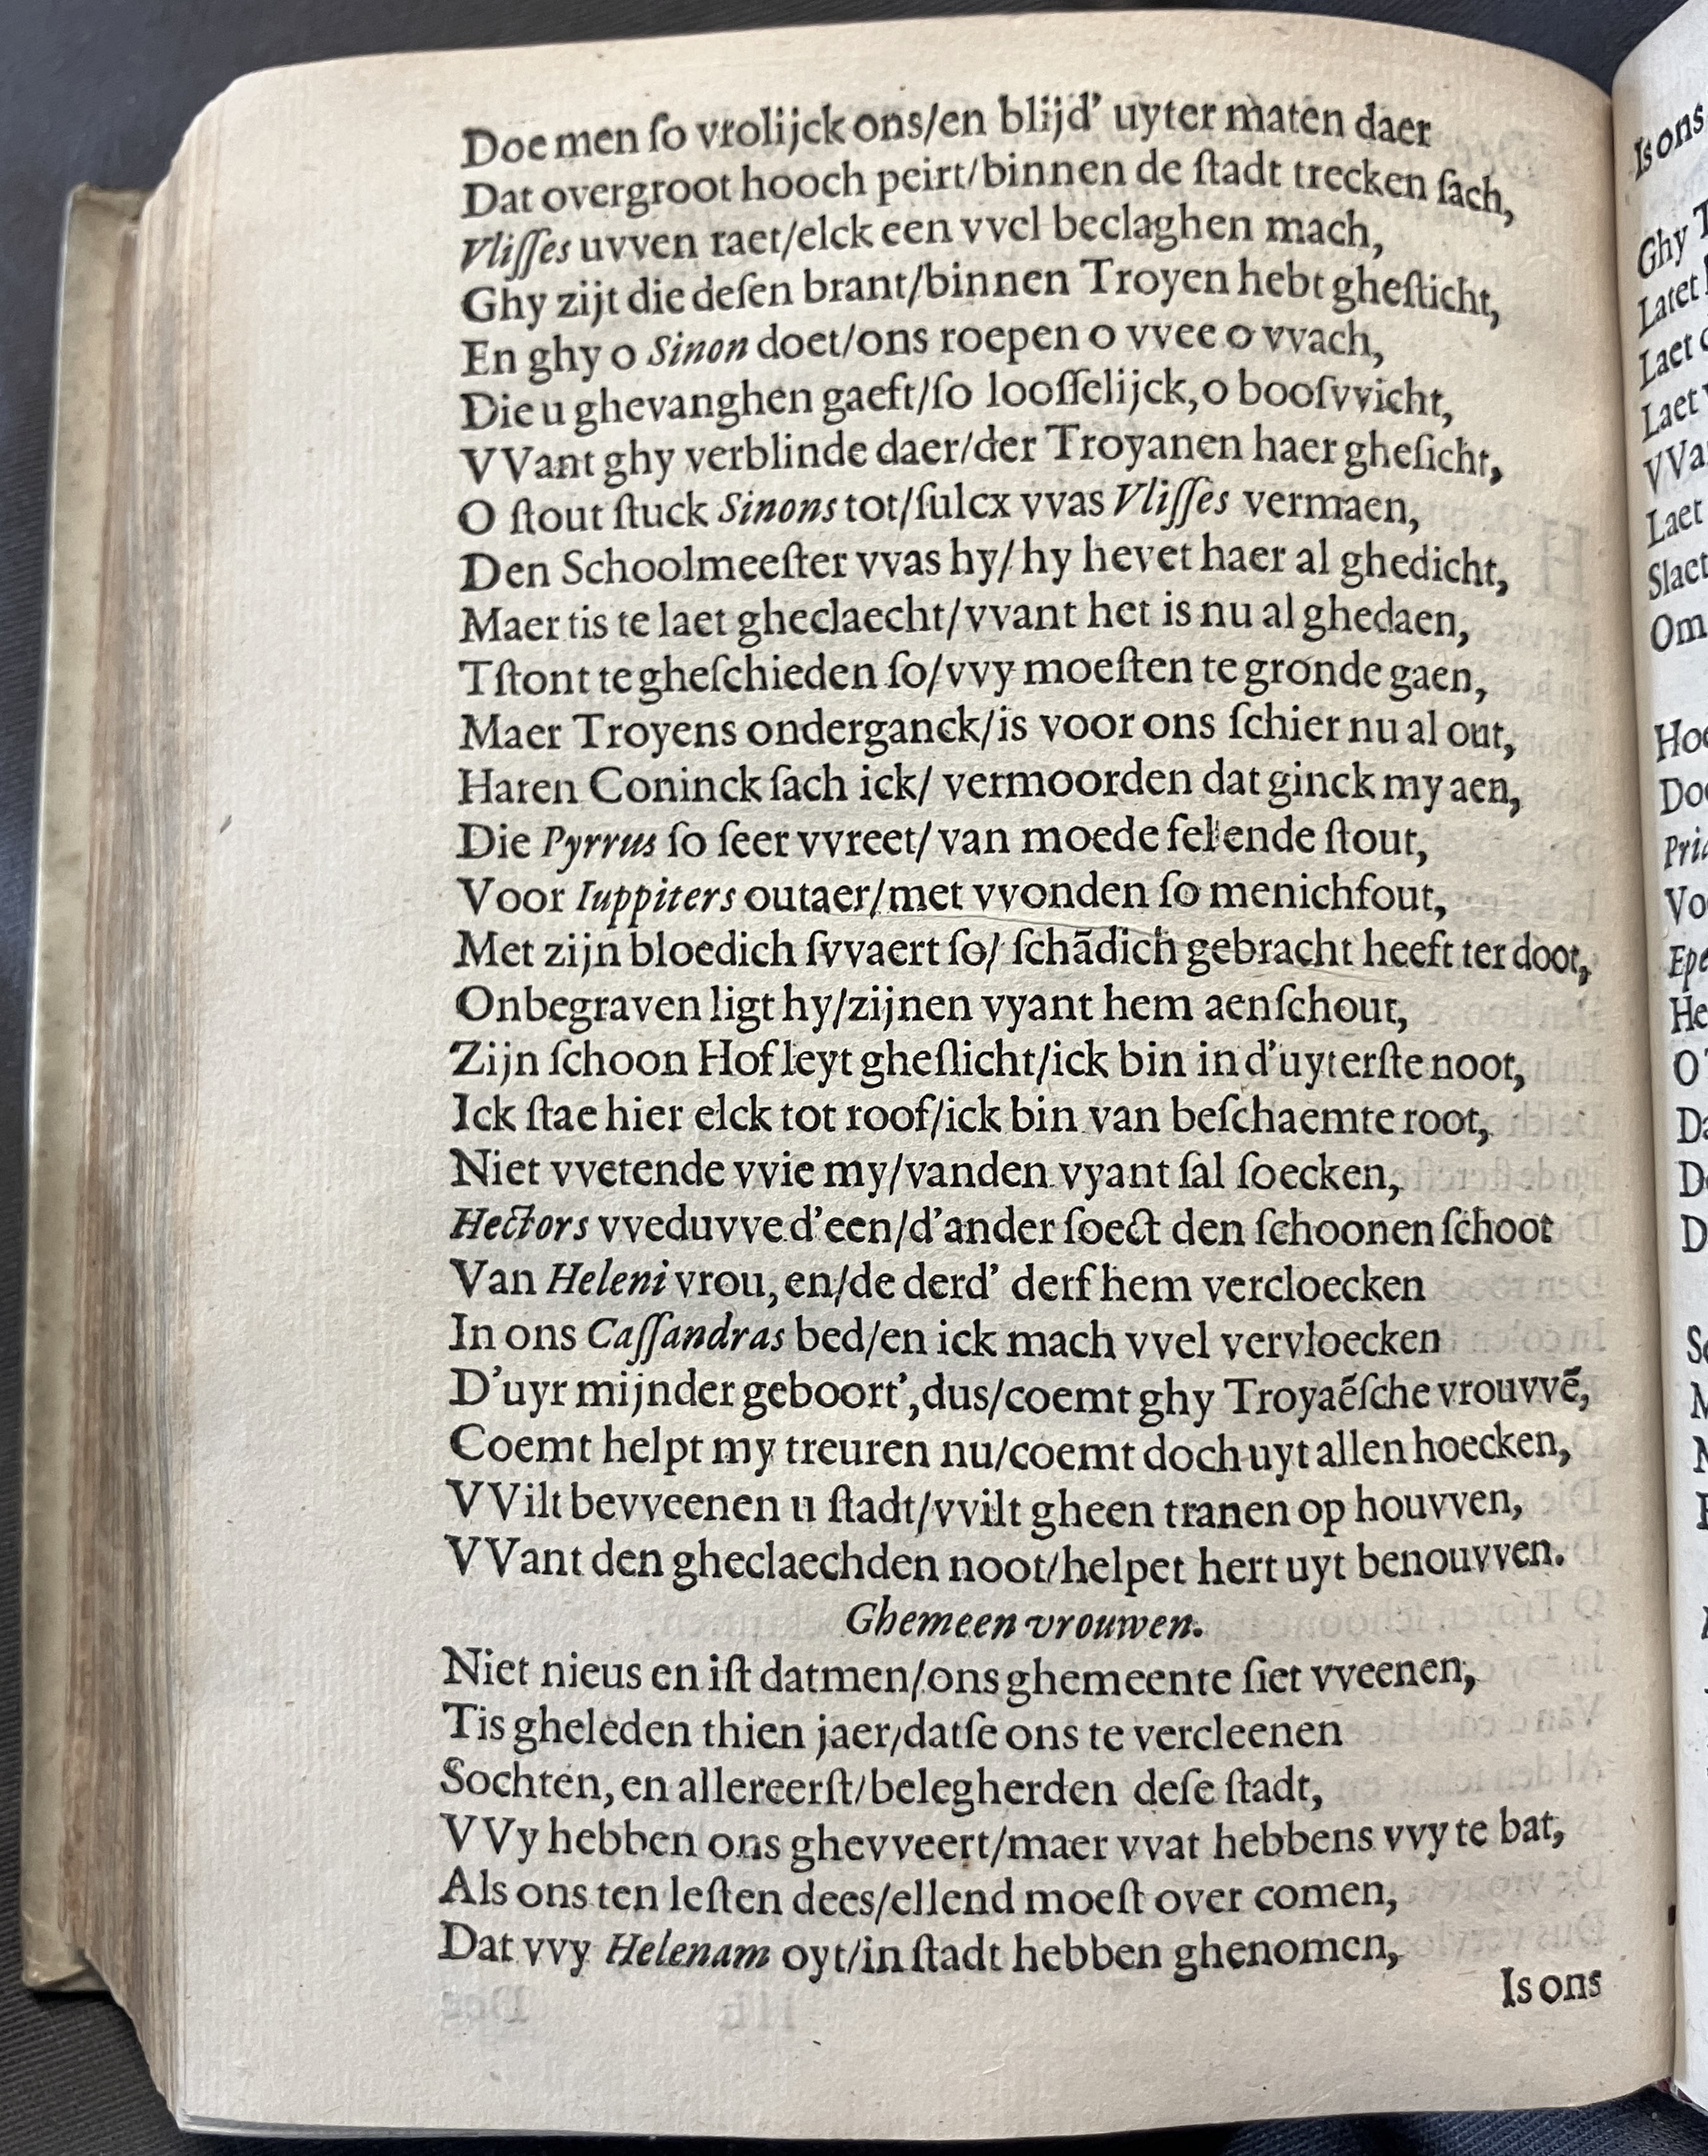 Doe men ſo vrolijck ons/en blijd' uyter maten daer
Dat overgroot hooch peirt/binnen de ſtadt trecken ſach,
Vliſſes uvven raet/elck een vvel beclaghen mach,
Ghy zijt die deſen brant/binnen Troyen hebt gheſticht,
En ghy o Sinon doet/ons roepen o vvee o vvach,
Die u ghevanghen gaeft/ſo looſſelijck, o booſvvicht,
VVant ghy verblinde daer/der Troyanen haer gheſicht,
O ſtout ſtuck Sinons tot/ſulcx vvas Vliſſes vermaen,
Den Schoolmeeſter vvas hy/ hy hevet haer al ghedicht,
Maer tis te laet gheclaecht/vvant het is nu al ghedaen,
Tſtont te gheſchieden ſo/vvy moeſten te gronde gaen,
Maer Troyens onderganck/is voor ons ſchier nu al out,
Haren Coninck ſach ick/ vermoorden dat ginck my aen,
Die Pyrrus ſo ſeer vvreet/ van moede fel ende ſtout,
Voor Iuppiters outaer/met vvonden ſo menichfout,
Met zijn bloedich ſvvaert ſo/ ſchãdich gebracht heeft ter doot,
Onbegraven ligt hy/zijnen vyant hem aenſchout,
Zijn ſchoon Hof leyt gheſlicht/ick bin in d'uyterſte noot,
Ick ſtae hier elck tot roof/ick bin van beſchaemte root,
Niet vvetende vvie my/vanden vyant ſal ſoecken,
Hectors vveduvve d'een/d'ander ſoect den ſchoonen ſchoot
Van Heleni vrou, en/de derd' derf hem vercloecken
In ons Caſſandras bed/en ick mach vvel vervloecken
D'uyr mijnder geboort', dus/coemt ghy Troyaẽſche vrouvvẽ,
Coemt helpt my treuren nu/coemt doch uyt allen hoecken,
VVilt bevveenen u ſtadt/vvilt gheen tranen op houvven,
VVant den gheclaechden noot/helpet hert uyt benouvven.
Ghemeen vrouwen.
Niet nieus en iſt datmen/ons ghemeente ſiet vveenen,
Tis gheleden thien jaer/datſe ons te vercleenen
Sochten, en allereerſt/belegherden deſe ſtadt,
VVy hebben ons ghevveert/maer vvat hebbens vvy te bat,
Als ons ten leſten dees/ellend moeſt over comen,
Dat vvy Helenam oyt/in ſtadt hebben ghenomen,
Is ons